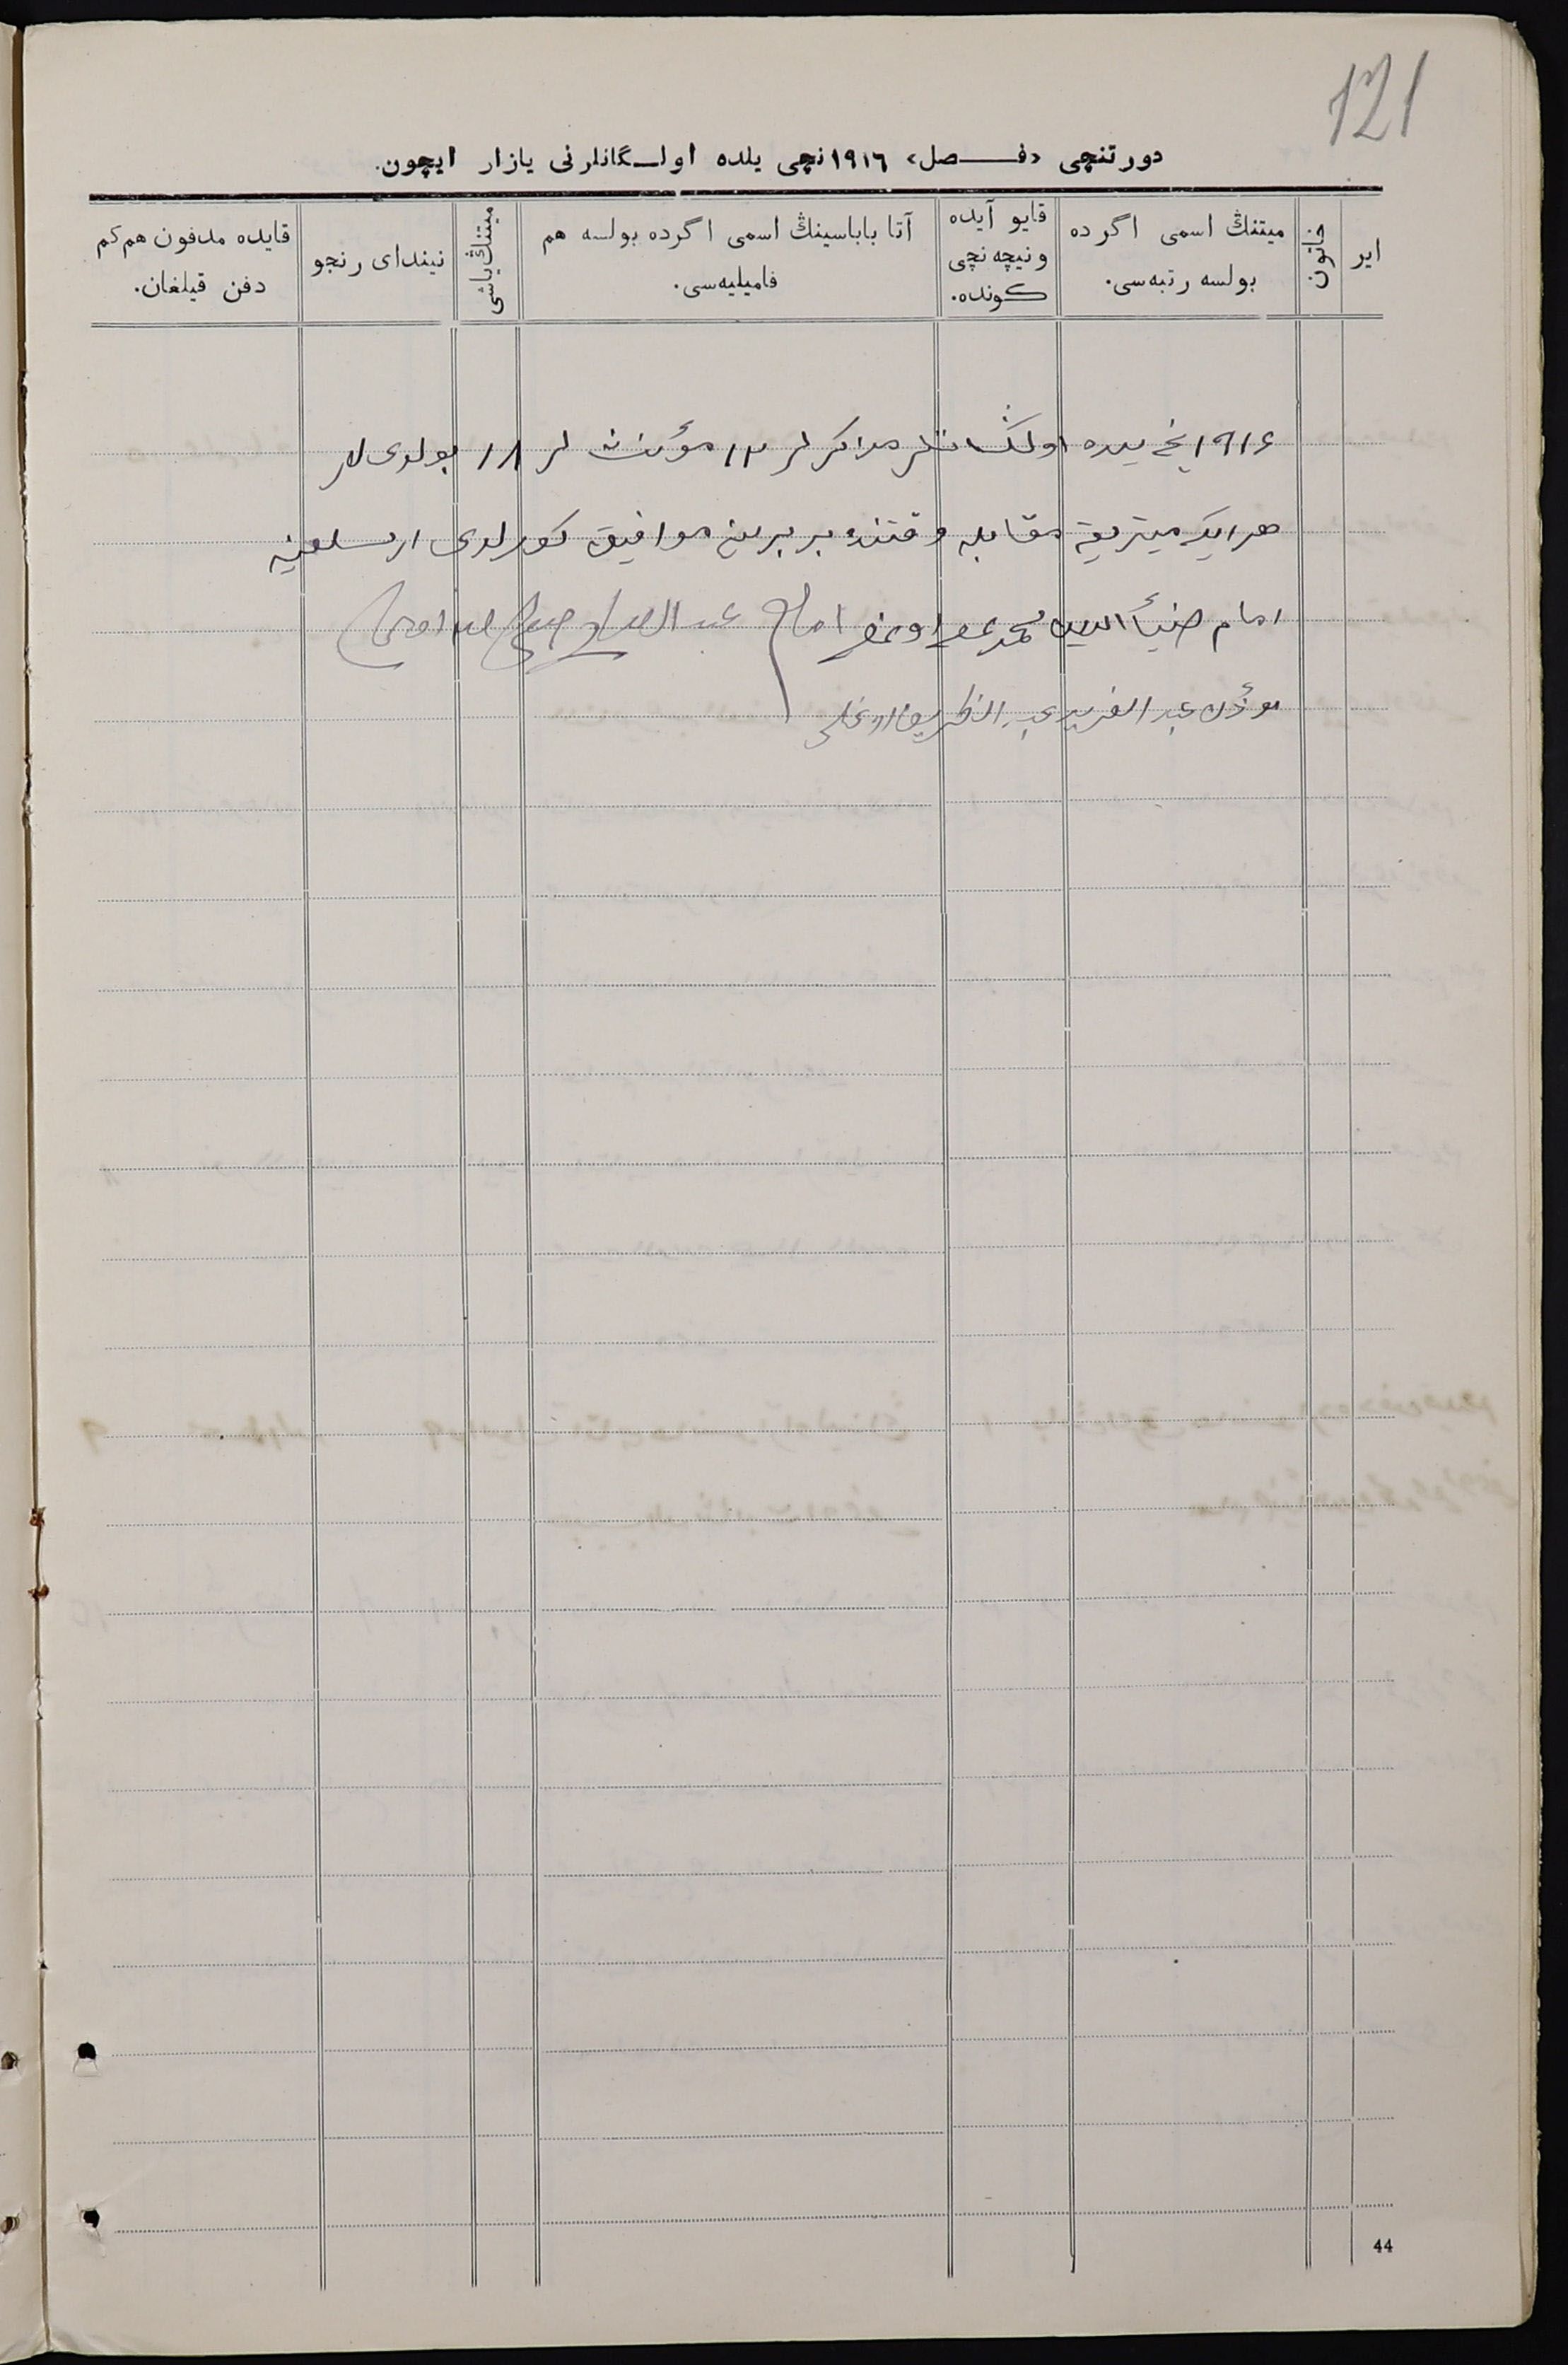 121
دورتنچی «فـــصل» ١٩١٦نچی یلده اولـگانلرنی یازار ایچون.
ایر
خاتون
میتنڭ اسمی اگرده
بولسه رتبه‌سی.
قایو آیده
و نیچه نچی
کـونده.
آتا باباسینڭ اسمی اگرده بولسه هم
فامیلیه‌سی.
میتنڭ یاشی
نیندای رنجو
قایده مدفون هم کم
دفن قیلغان.
١٩١٦ نچی یلده اولگانلر مذکرلر ١٢ مؤنث لر ١٨ بولدی لار
هر ایک میتریقه مقابله وقتنده بر برینه موافیق کورلدی
امام ضیأالدین محمد امام عبد
مؤذن عبد
44